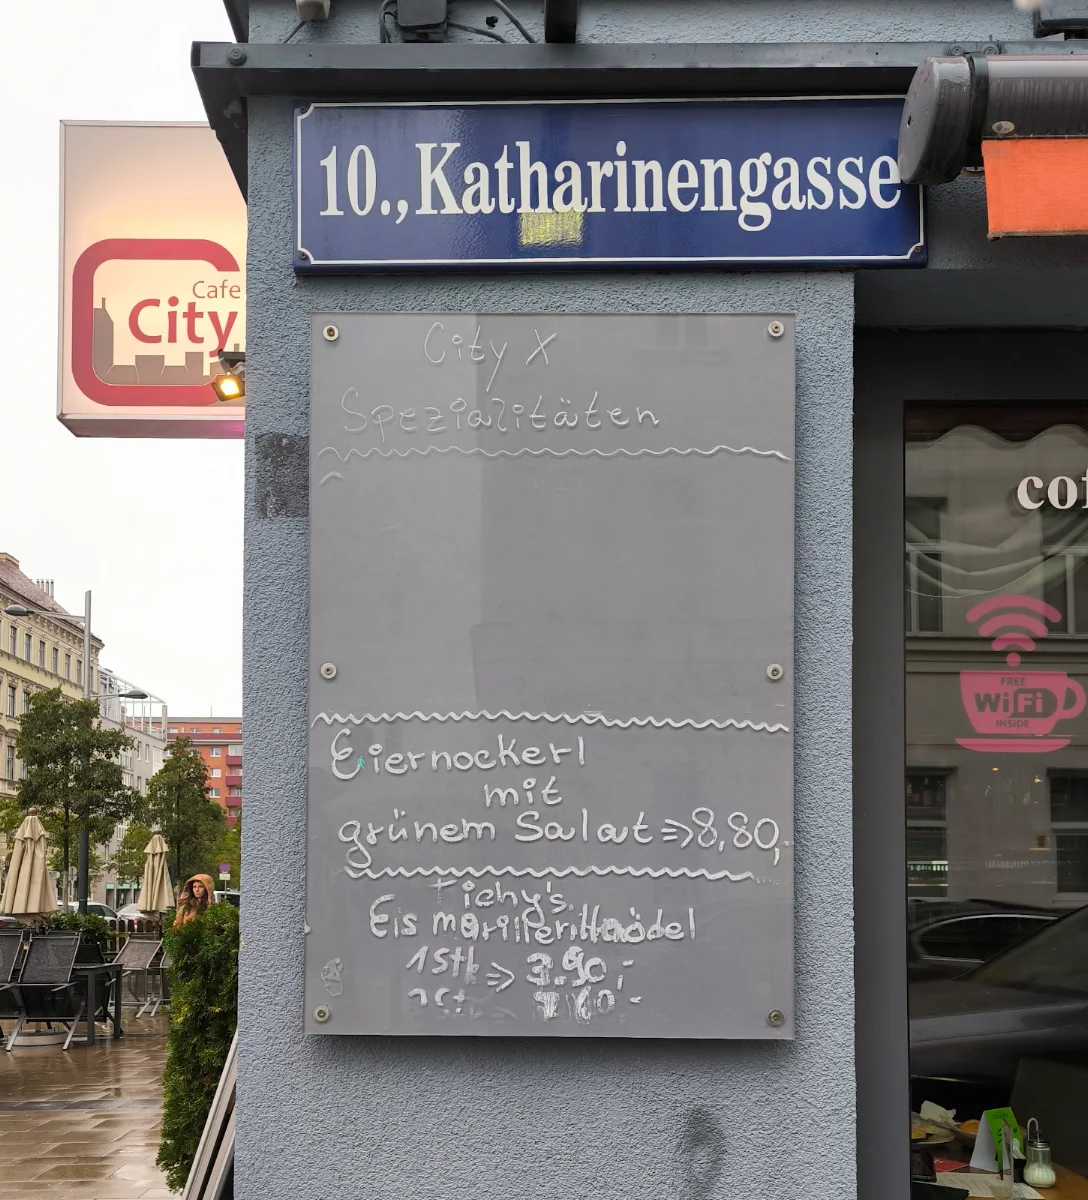 10., Katharinengasse
Cafe
City
City X
Spezialitäten
Eiernockerl
mit
grünem Salat => 8,80,-
Tichy's
Eis marillenknödel
1 Stk => 3.90,-
2 St
cof
FREE
WiFi
INSIDE